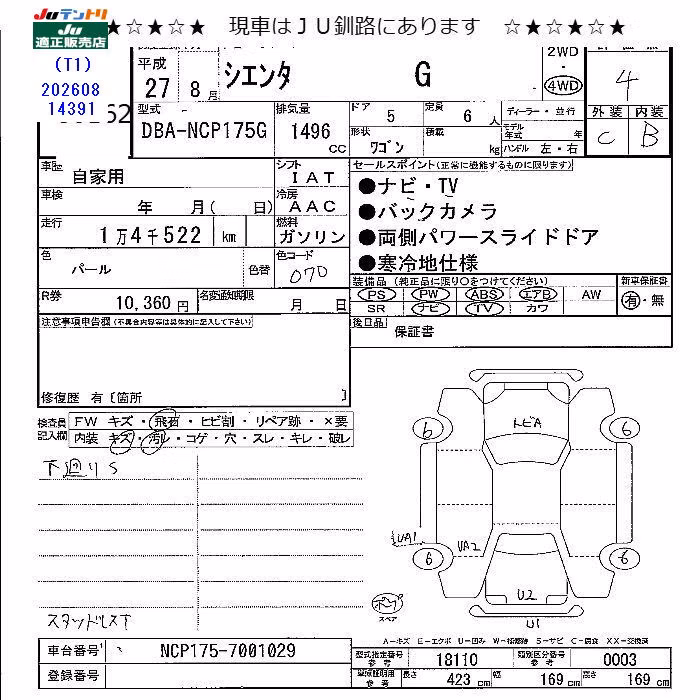 Juテントリ
JU
適正販売店
★☆★☆★ 現車はJU釧路にあります ☆★☆★☆★
(T1)
202608
14391
平成
27年 8月 シエンタ G
2WD
・
4WD
4
型式 DBA-NCP175G
排気量 1496 CC
ドア 5
定員 6 人
形状 ワゴン
積載 kg
ディーラー・並行
モデル年式 年
ハンドル 左・右
外装 内装
C B
車歴 自家用
シフト IAT
車検 年 月( 日)
冷房 AAC
走行 1万4千522 km
燃料 ガソリン
色 パール 色替
色コード 070
R券 10,360 円
名変通知期限 月 日
セールスポイント(正常に機能するものに限ります)
●ナビ・TV
●バックカメラ
●両側パワースライドドア
●寒冷地仕様
装備品 (純正品に限り○をつけてください) 新車保証書
PS PW ABS エアB AW 有・無
SR ナビ TV カワ
後日品 保証書
注意事項申告欄(不具合内容等は具体的に記入して下さい)
修復歴 有〔箇所 〕
検査員記入欄
FW キズ・飛石・ヒビ割・リペア跡・×要
内装 キズ・汚レ・コゲ・穴・スレ・キレ・破レ
下廻りS
スタッドレス下
トビA
6 6
UA1
UA2
6 6
U2
U1
スペア
A-キズ E-エクボ U-凹み W-補修跡 S-サビ C-腐食 XX-交換済
車台番号 NCP175-7001029
登録番号
型式指定番号 参考 18110
類別区分番号 参考 0003
型式証明用 参考
長さ 423 cm 幅 169 cm 高さ 169 cm